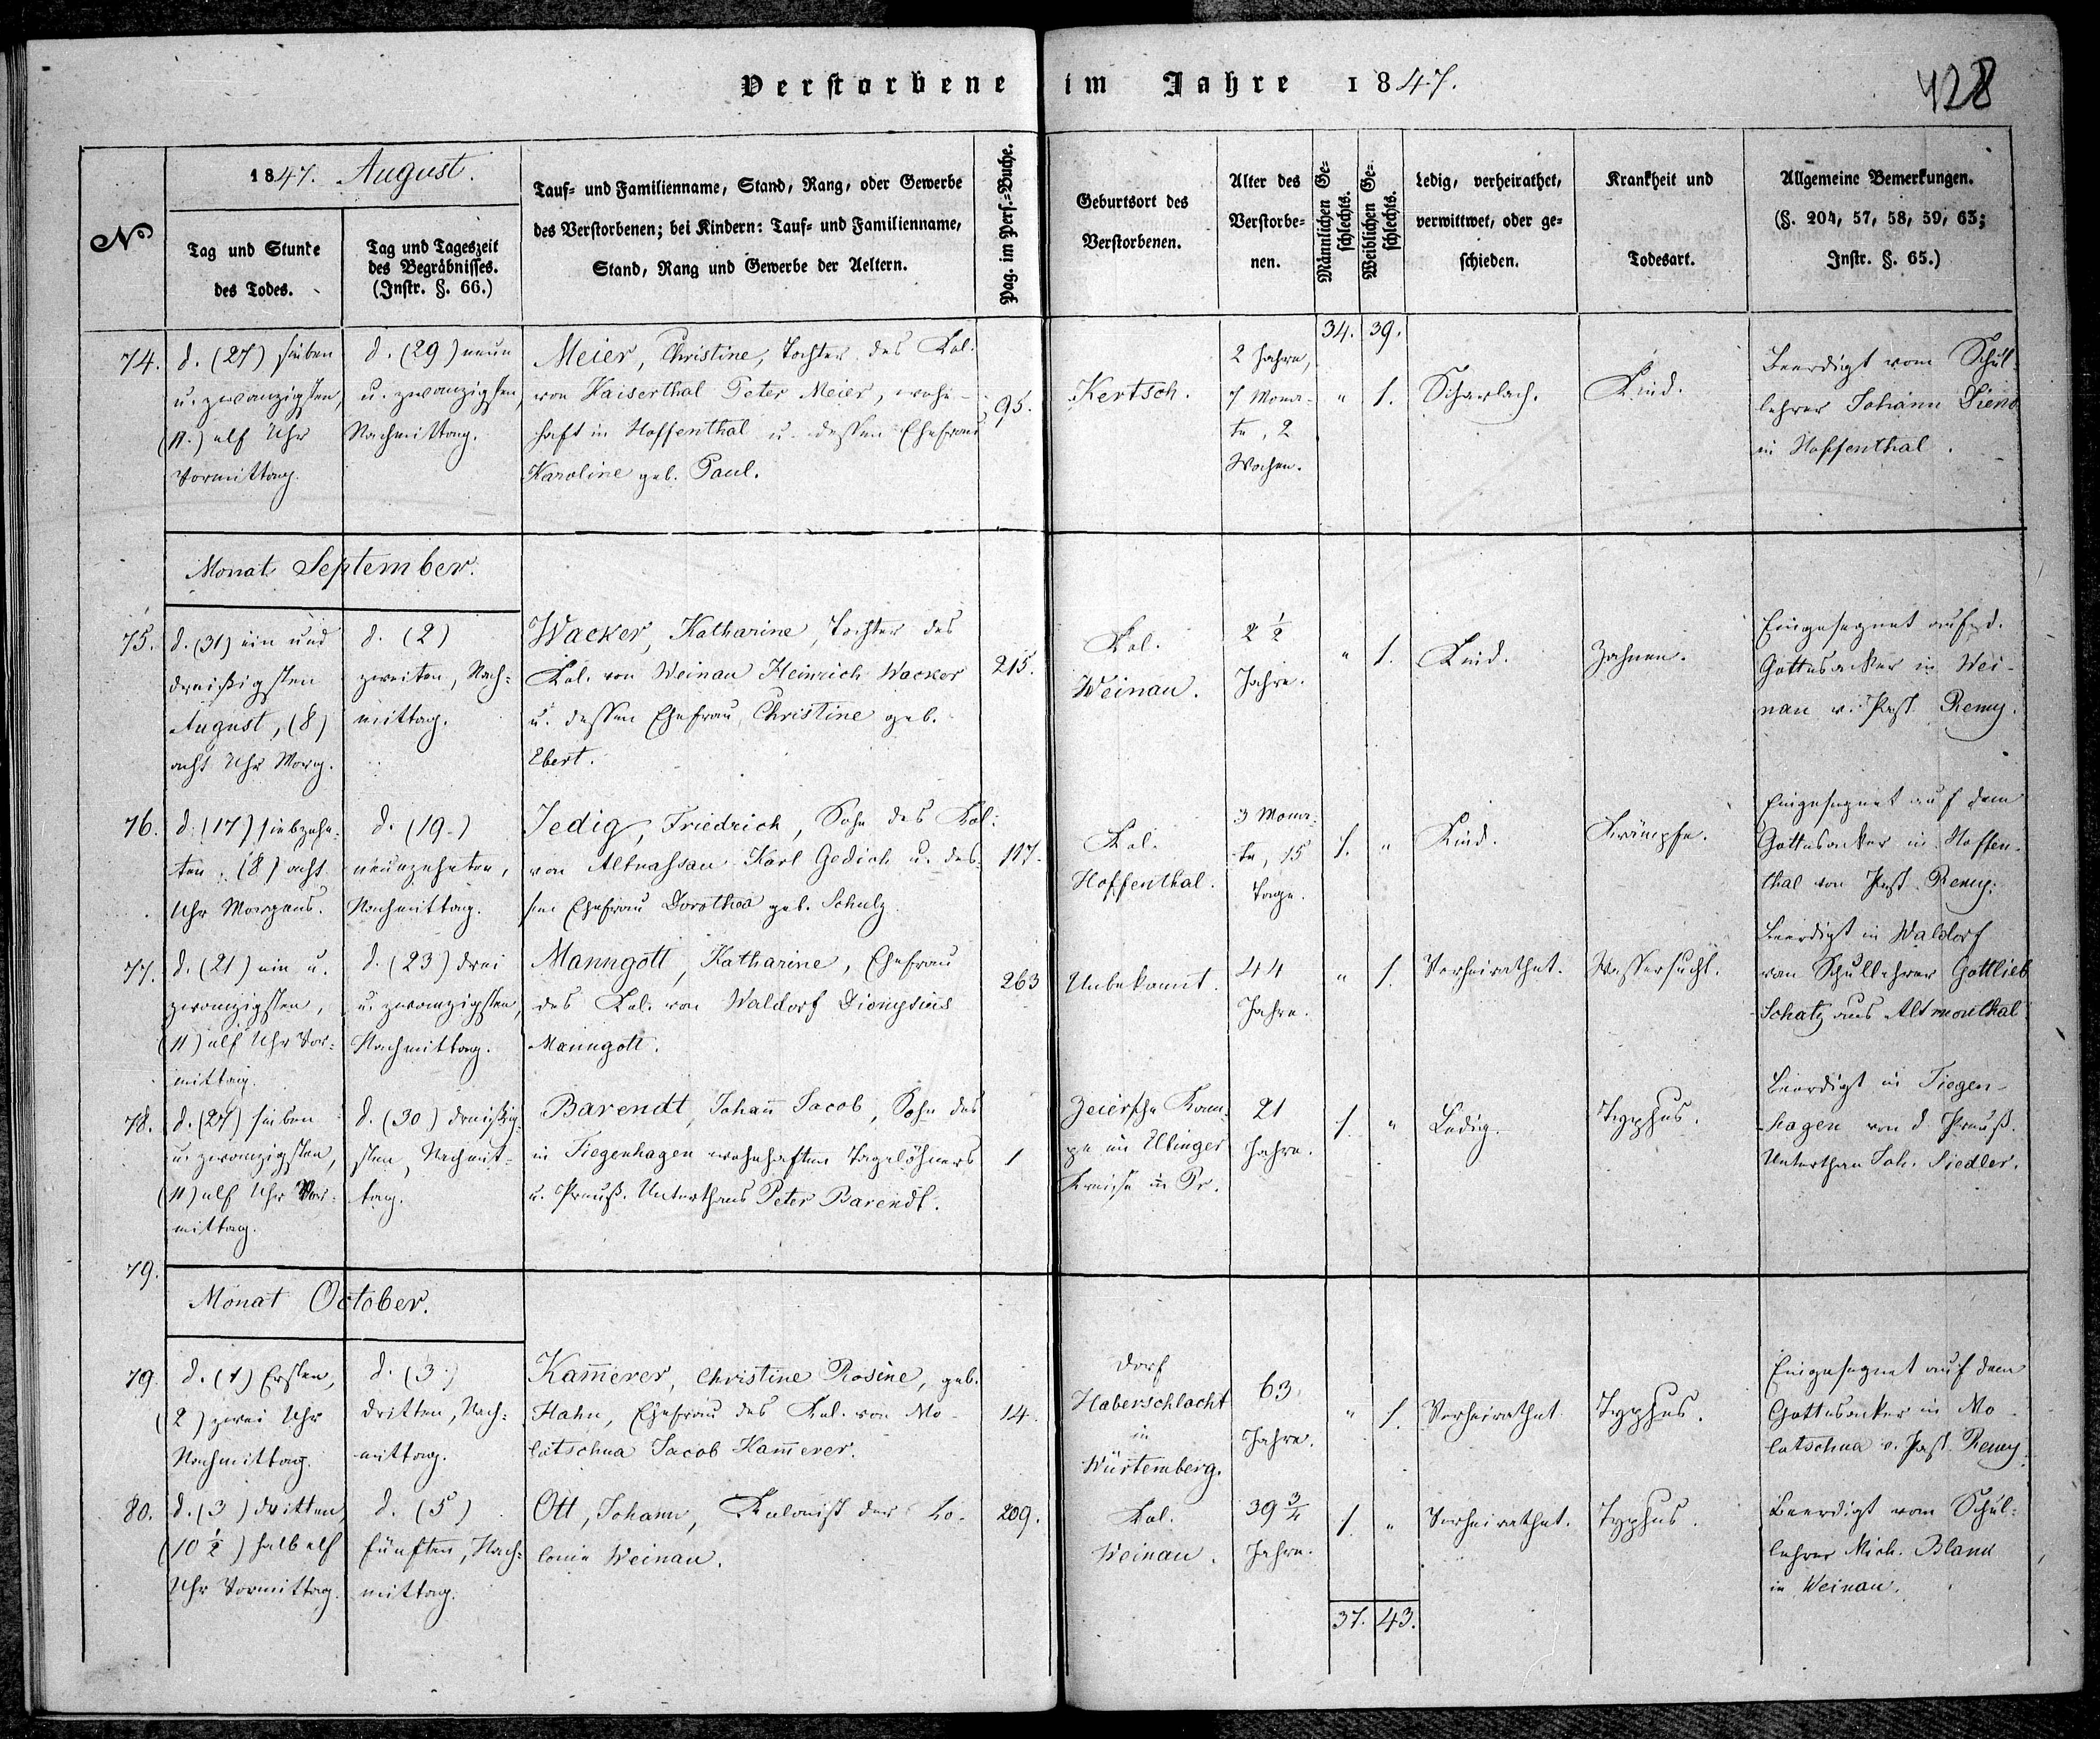 Verstorbene im Jahre 1847.
428
№
1847. August.
Tag und Stunde
des Todes.
Tag und Tageszeit
des Begräbnisses.
(Instr. §. 66.)
Tauf- und Familienname, Stand, Rang, oder Gewerbe
des Verstorbenen; bei Kindern: Tauf- und Familienname,
Stand, Rang und Gewerbe der Aeltern.
Pag. im Pers.-Buche.
Geburtsort des
Verstorbenen.
Alter des
Verstorbe-
nen.
Männlichen Ge-
schlechts.
Weiblichen Ge-
schlechts.
Ledig, verheirathet,
verwittwet, oder ge-
schieden.
Krankheit und
Todesart.
Allgemeine Bemerkungen.
(§. 204, 57, 58, 59, 63;
Instr. §. 65.)
34. 39.
74.
d. (27) sieben
u. zwanzigsten,
(11.) elf Uhr
Vormittag.
d. (29) neun
u. zwanzigsten,
Nachmittag.
Meier, Christine, Tochter des Kol.
von Kaiserthal Peter Meier, wohn-
haft in Hoffenthal u. dessen Ehefrau
Karoline geb. Paul.
95.
Kertsch.
2 Jahre,
7 Mona-
te, 2
Wochen.
" 1.
Scharlach.
Kind.
Beerdigt vom Schul-
lehrer Johann
in Hoffenthal.
Monat September.
75.
d. (31) ein und
dreißigsten
August, (8)
acht Uhr Morg.
d. (2)
zweiten, Nach-
mittag.
Wacker, Katharine, Tochter des
Kol. von Weinau Heinrich Wacker
u. dessen Ehefrau Christine geb.
Ebert.
215.
Kol.
Weinau.
2 1/2
Jahre.
" 1.
Kind.
Zahnen.
Eingesegnet auf d.
Gottesacker in Wei-
nau v. Past. Remy.
76.
d. (17) siebzehn-
ten, (8) acht
Uhr Morgens.
d. (19.)
neunzehnten,
Nachmittag.
Jedig, Friedrich, Sohn des Kol.
von Altnassau Karl Gedich u. des-
sen Ehefrau Dorothea geb. Schulz.
117.
Kol.
Hoffenthal.
3 Mona-
te, 15
Tage.
1. "
Kind.
Krämpfe.
Eingesegnet auf dem
Gottesacker in Hoffen-
thal von Past. Remy.
77.
d. (21) ein u.
zwanzigsten,
(11) elf Uhr Vor-
mittag.
d. (23) drei
u. zwanzigsten,
Nachmittag.
Manngott, Katharine, Ehefrau
des Kol. von Waldorf Dionysius
Manngott.
263
Unbekannt.
44
Jahre.
" 1.
Verheirathet.
Wassersucht.
Beerdigt in Waldorf
von Schullehrer Gottlieb
Schatz aus Altmonthal
78.
d. (27) sieben
u. zwanzigsten,
(11) elf Uhr Vor-
mittag.
d. (30) dreißig-
sten, Nachmit-
tag.
Barendt, Johan̄ Jacob, Sohn des
in Tiegenhagen wohnhaften Tagelöhners
u. Preuß. Unterthans Peter Barendt.
1
Zeiersche Kam-
pe im Elbinger
Kreise in Pr.
21
Jahre.
1. "
Ledig.
Typhus.
Beerdigt in Tiegen-
hagen von d. Preuß.
Unterthan Joh. Siedler.
79.
Monat October.
79.
d. (1) Ersten,
(2) zwei Uhr
Nachmittag.
d. (3.)
dritten, Nach-
mittag.
Kam̄erer, Christine Rosine, geb.
Hahn, Ehefrau des Kol. von Mo-
lotschna Jacob Kam̄erer.
14.
Dorf
Haberschlacht
in
Würtemberg.
63
Jahre.
" 1.
Verheirathet.
Typhus.
Eingesegnet auf dem
Gottesacker in Mo-
lotschna v. Past. Remy.
80.
d. (3) dritten,
(10 1/2) halb elf
Uhr Vormittag.
d. (5)
fünften, Nach-
mittag.
Ott, Johann, Kolonist der Ko-
lonie Weinau.
209.
Kol.
Weinau.
39 3/4
Jahre.
1. "
Verheirathet.
Typhus.
Beerdigt vom Schul-
lehrer Mich. Blank
in Weinau.
37. 43.